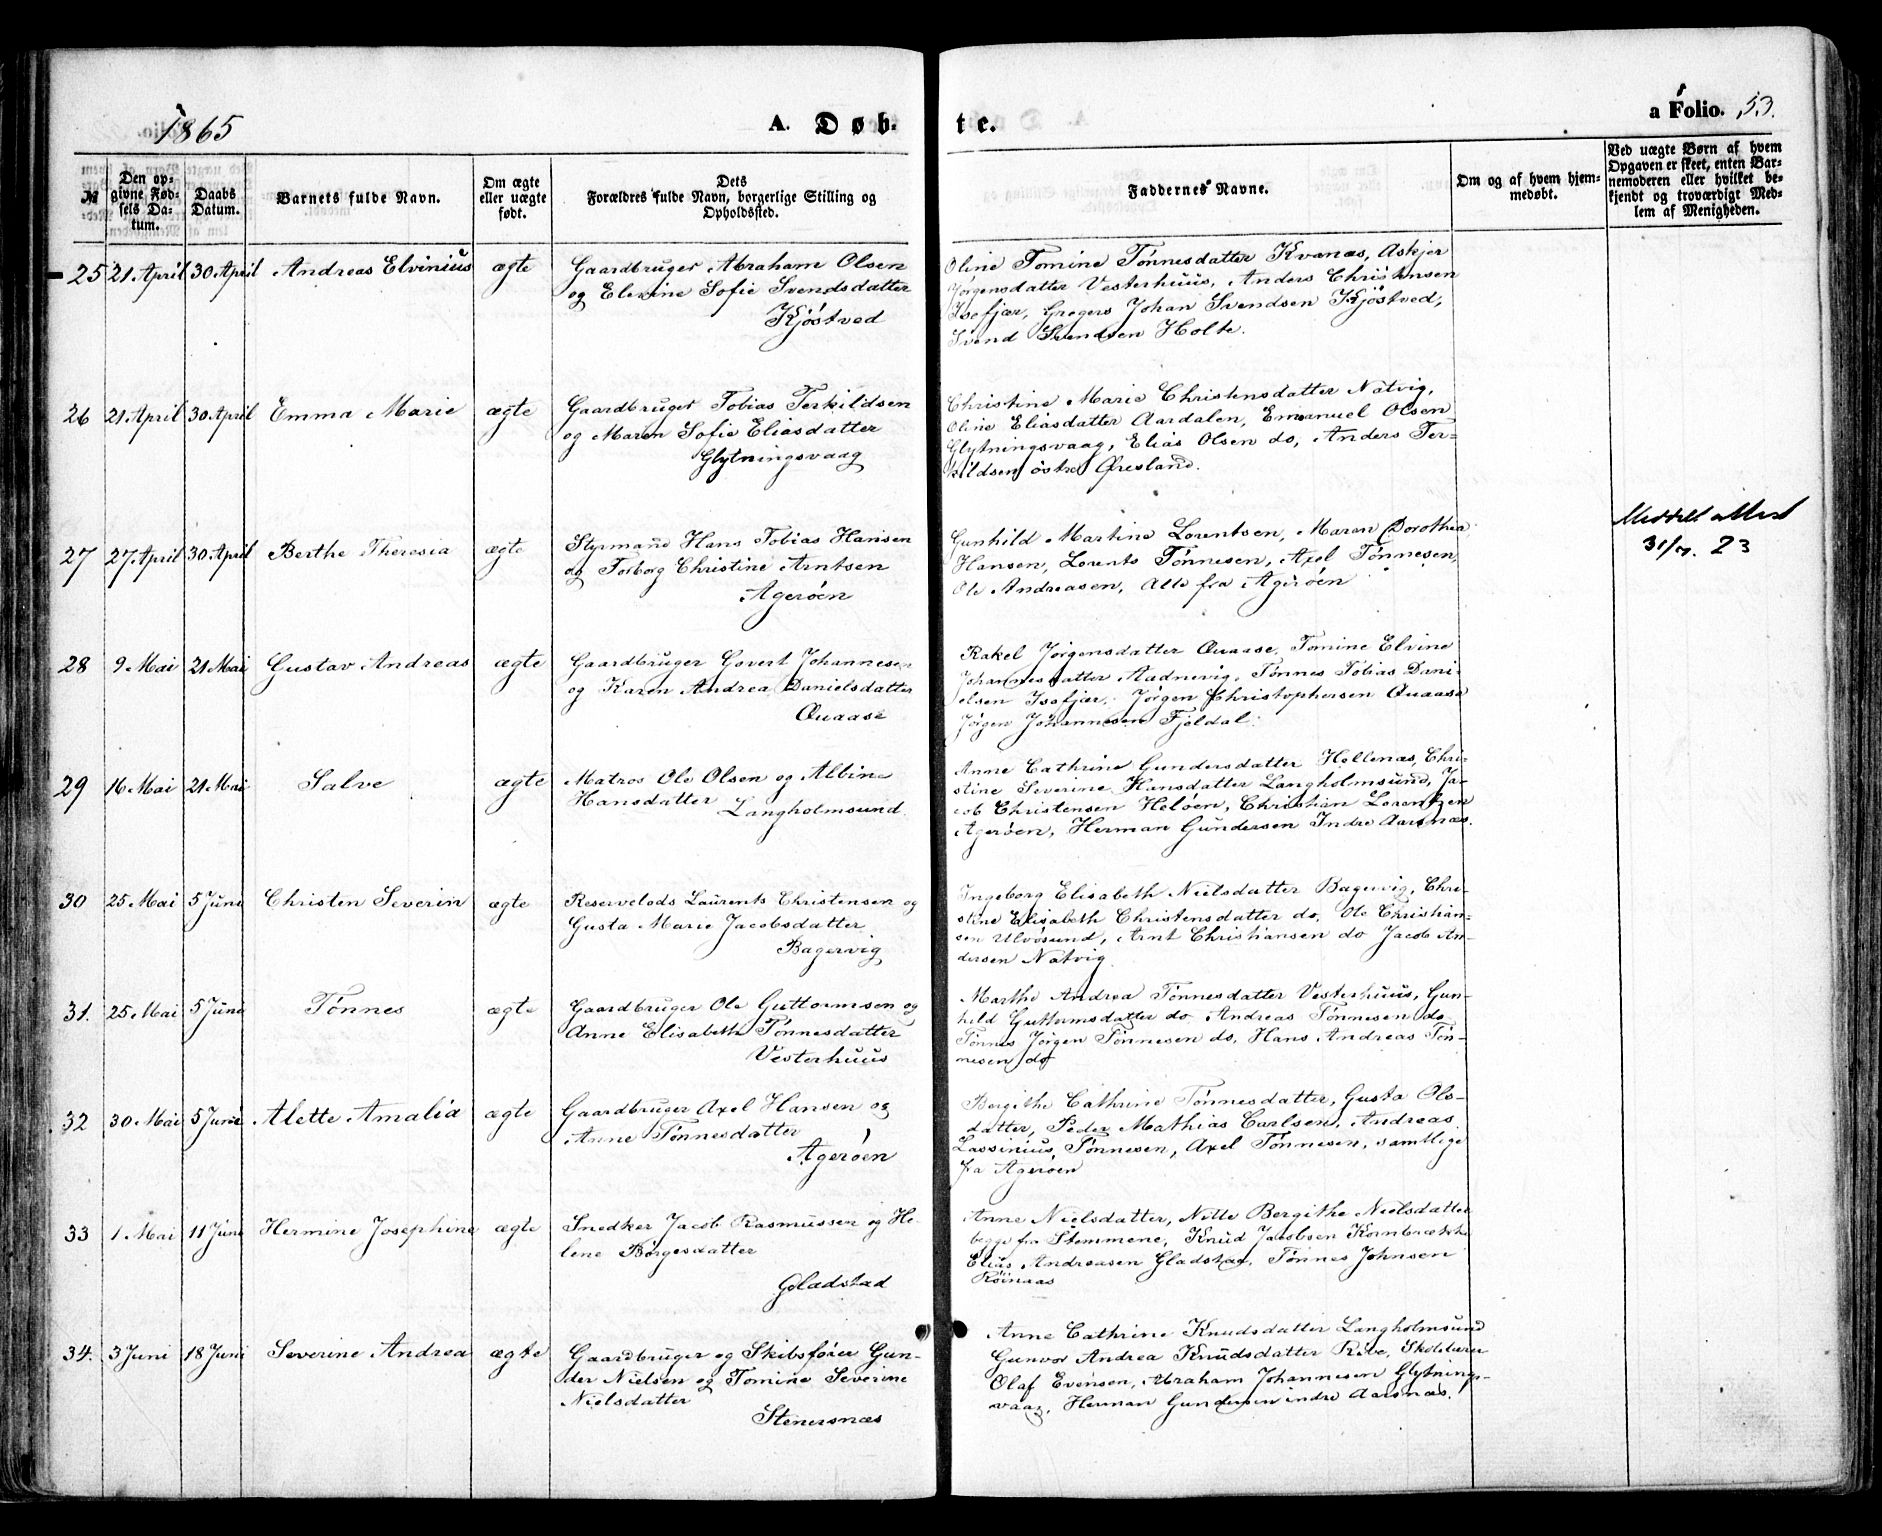 1865
A. Døbte.
a Folio. 53.
№
Den opgivne Fødsels Datum.
Daabs Datum.
Barnets fulde Navn.
Om ægte eller uægte født.
Dets Forældres fulde Navn, borgerlige Stilling og Opholdssted.
Faddernes Navne.
Om og af hvem hjemmedøbt.
Ved uægte Børn af hvem Opgaven er skeet, enten Barnemoderen eller hvilket bekjendt og troværdigt Medlem af Menigheden.
25 21 April 30 April Andreas Elvinius ægte
Gaardbruger Abraham Olsen
og Elevine Sofie Svendsdatter
Kjöstved
Oline Tomine Tønnesdatter Kvanæs, Askjer
Jörgensdatter Vesterhuus, Anders Christensen
Isefjær, Gregers Johan Svendsen Kjöstved,
Svend Svendsen Holte.
26 21 April 30 April Emma Marie ægte
Gaardbruger Tobias Terkildsen
og Maren Sofie Eliasdatter
Glytningsvaag
Christine Marie Christensdatter Natvig,
Oline Eliasdatter Aardalen, Emanuel Olsen
Glytningsvaag, Elias Olsen do, Anders Ter-
kildsen östre Øresland.
27 27 April 30 April Berthe Theresia ægte
Styrmand Hans Tobias Hansen
og Torborg Christine Arntsen
Agerøen
Gunhild Martine Lorentsen, Maren Dorothea
Hansen, Lorents Tønnesen, Axel Tønnesen,
Ole Andreasen, Alle fra Agerøen
Meddelt Attest
23
28 9 Mai 21 Mai Gustav Andreas ægte
Gaardbruger Govert Johannesen
og Karen Andrea Danielsdatter
Quaase
Rakel Jörgensdatter Quaase, Tomine Elvine
Johannesdatter Aadnevig, Tønnes Tobias Dani-
elsen Isefjær, Jørgen Christophersen Quaase
Jørgen Johannesen Fjeldal.
29 16 Mai 21 Mai Salve ægte
Matros Ole Olsen og Albine
Hansdatter
Langholmsund.
Anne Cathrine Gundersdatter Hellenæs, Chri-
stine Severine Hansdatter Langholmsund, Ja-
cob Christensen Heløen, Christian Lorentzen
Agerøen, Herman Gundersen Indre Aarsnæs.
30 25 Mai 5 Juni Christen Severin ægte
Reservelods Laurents Christensen og
Gusta Marie Jacobsdatter
Bagervig
Ingeborg Elisabeth Nielsdatter Bagervig, Chri-
stine Elisabeth Christensdatter do, Ole Christian-
sen Ulvøsund, Arnt Christiansen do Jacob An-
dersen Natvig
31. 25 Mai 5 Juni Tønnes ægte
Gaardbruger Ole Guttormsen og
Anne Elisabeth Tønnesdatter
Vesterhuus
Marthe Andrea Tønnesdatter Vesterhuus, Gun-
hild Guttormsdatter do Andreas Tønnesen do
Tønnes Jørgen Tønnesen do, Hans Andreas Tøn-
nesen do
32 30 Mai 5 Juni Alette Amalia ægte
Gaardbruger Axel Hansen og
Anne Tønnesdatter
Agerøen
Bergithe Cathrine Tønnesdatter, Gusta Ols-
datter, Peder Mathias Carlsen, Andreas
Lassinius Tønnesen, Axel Tønnesen, samtlige
fra Agerøen
33 1 Mai 11 Juni Hermine Josephine ægte
Snedker Jacob Rasmussen og He-
lene Börgesdatter
Gladstad
Anne Nielsdatter, Nille Bergithe Nielsdatter
begge fra Stemmene, Knud Jacobsen Kornbrække
Elias Andreasen Gladstad, Tønnes Johnsen
Röinaas
34. 3 Juni 18 Juni Severine Andrea ægte
Gaardbruger og Skibsfører Gun-
der Nielsen og Tomine Severine
Nielsdatter
Stenersnæs
Anne Cathrine Knudsdatter Langholmsund
Gunvor Andrea Knudsdatter Ribe, Skolelærer
Olaf Evensen, Abraham Johannesen Glytnings-
vaag, Herman Gundersen indre Aarsnæs.